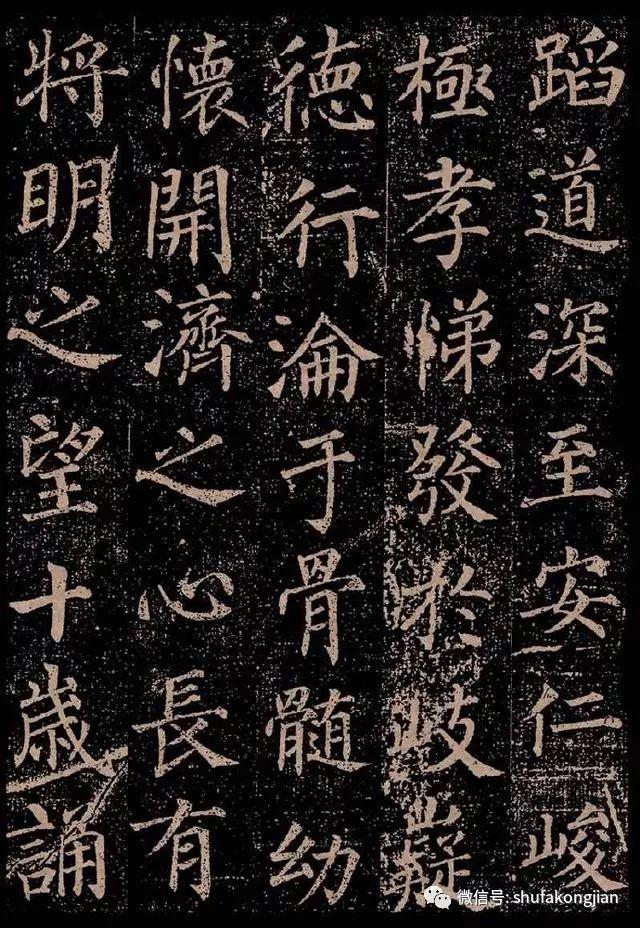 蹈道深至安仁峻
極孝悌發於岐嶷
德行淪于骨髓幼
懷開濟之心長有
將明之望十歲誦
微信号: shufakongjian